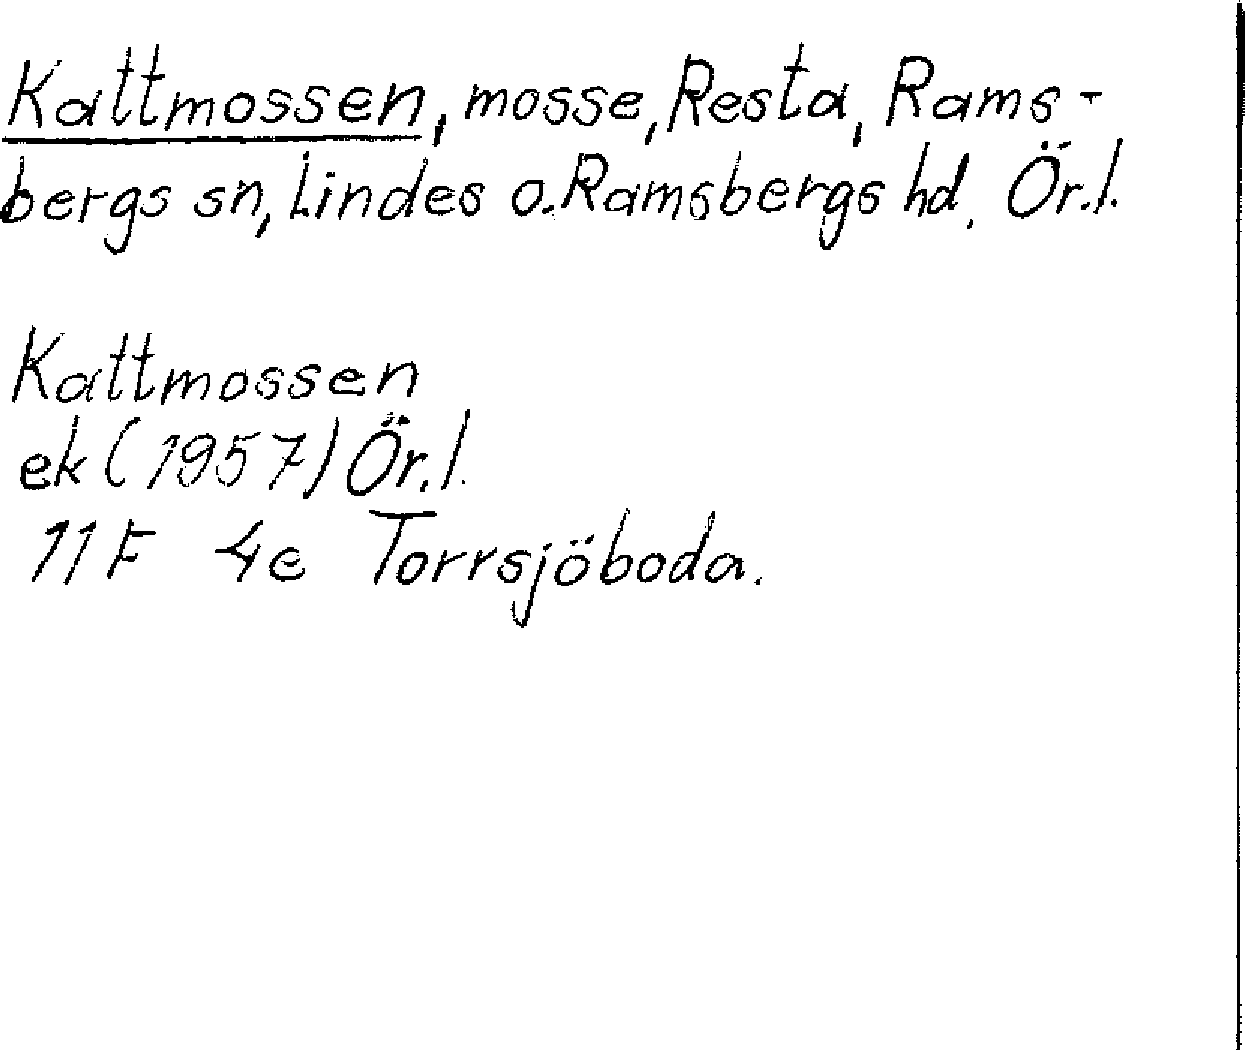 Kattmossen, mosse, Resta, Rams-
bergs sn, Lindes o. Ramsbergs hd. Ör.l.
Kattmossen
ek (1957) Ör.l.
11F 4e Torrsjöboda.